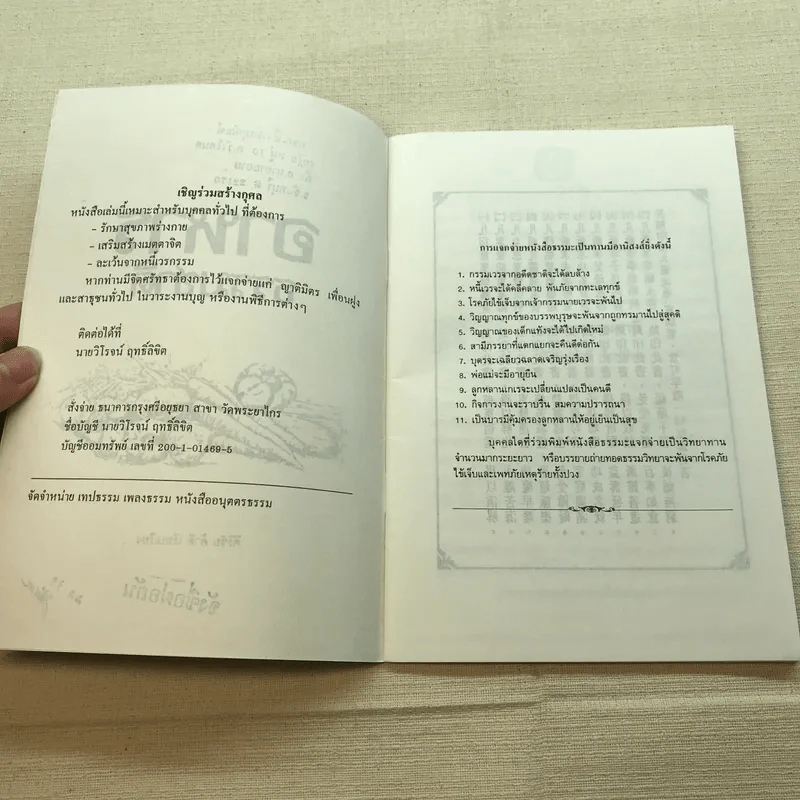 เชิญร่วมสร้างกุศล
หนังสือเล่มนี้เหมาะสำหรับบุคคลทั่วไป ที่ต้องการ
- รักษาสุขภาพร่างกาย
- เสริมสร้างเมตตาจิต
- ละเว้นจากหนี้เวรกรรม
หากท่านมีจิตศรัทธาต้องการไว้แจกจ่ายแก่ ญาติมิตร เพื่อนฝูง
และสาธุชนทั่วไป ในวาระงานบุญ หรืองานพิธีการต่างๆ
ติดต่อได้ที่
นายวิโรจน์ ฤทธิ์ลิขิต
สั่งจ่าย ธนาคารกรุงศรีอยุธยา สาขา วัดพระยาไกร
ชื่อบัญชี นายวิโรจน์ ฤทธิ์ลิขิต
บัญชีออมทรัพย์ เลขที่ 200-1-01469-5
จัดจำหน่าย เทปธรรม เพลงธรรม หนังสืออนุตตรธรรม
การแจกจ่ายหนังสือธรรมะเป็นทานมีอานิสงส์ยิ่งดังนี้
1. กรรมเวรจากอดีตชาติจะได้ลบล้าง
2. หนี้เวรจะได้คลี่คลาย พ้นภัยจากทะเลทุกข์
3. โรคภัยไข้เจ็บจากเจ้ากรรมนายเวรจะพ้นไป
4. วิญญาณทุกข์ของบรรพบุรุษจะพ้นจากถูกทรมานไปสู่สุคติ
5. วิญญาณของเด็กแท้งจะได้ไปเกิดใหม่
6. สามีภรรยาที่แตกแยกจะคืนดีต่อกัน
7. บุตรจะเฉลียวฉลาดเจริญรุ่งเรือง
8. พ่อแม่จะมีอายุยืน
9. ลูกหลานเกเรจะเปลี่ยนแปลงเป็นคนดี
10. กิจการงานจะราบรื่น สมความปรารถนา
11. เป็นบารมีคุ้มครองลูกหลานให้อยู่เย็นเป็นสุข
บุคคลใดที่ร่วมพิมพ์หนังสือธรรมะแจกจ่ายเป็นวิทยาทาน
จำนวนมากระยะยาว หรือบรรยายถ่ายทอดธรรมวิทยาจะพ้นจากโรคภัย
ไข้เจ็บและเพทภัยเหตุร้ายทั้งปวง